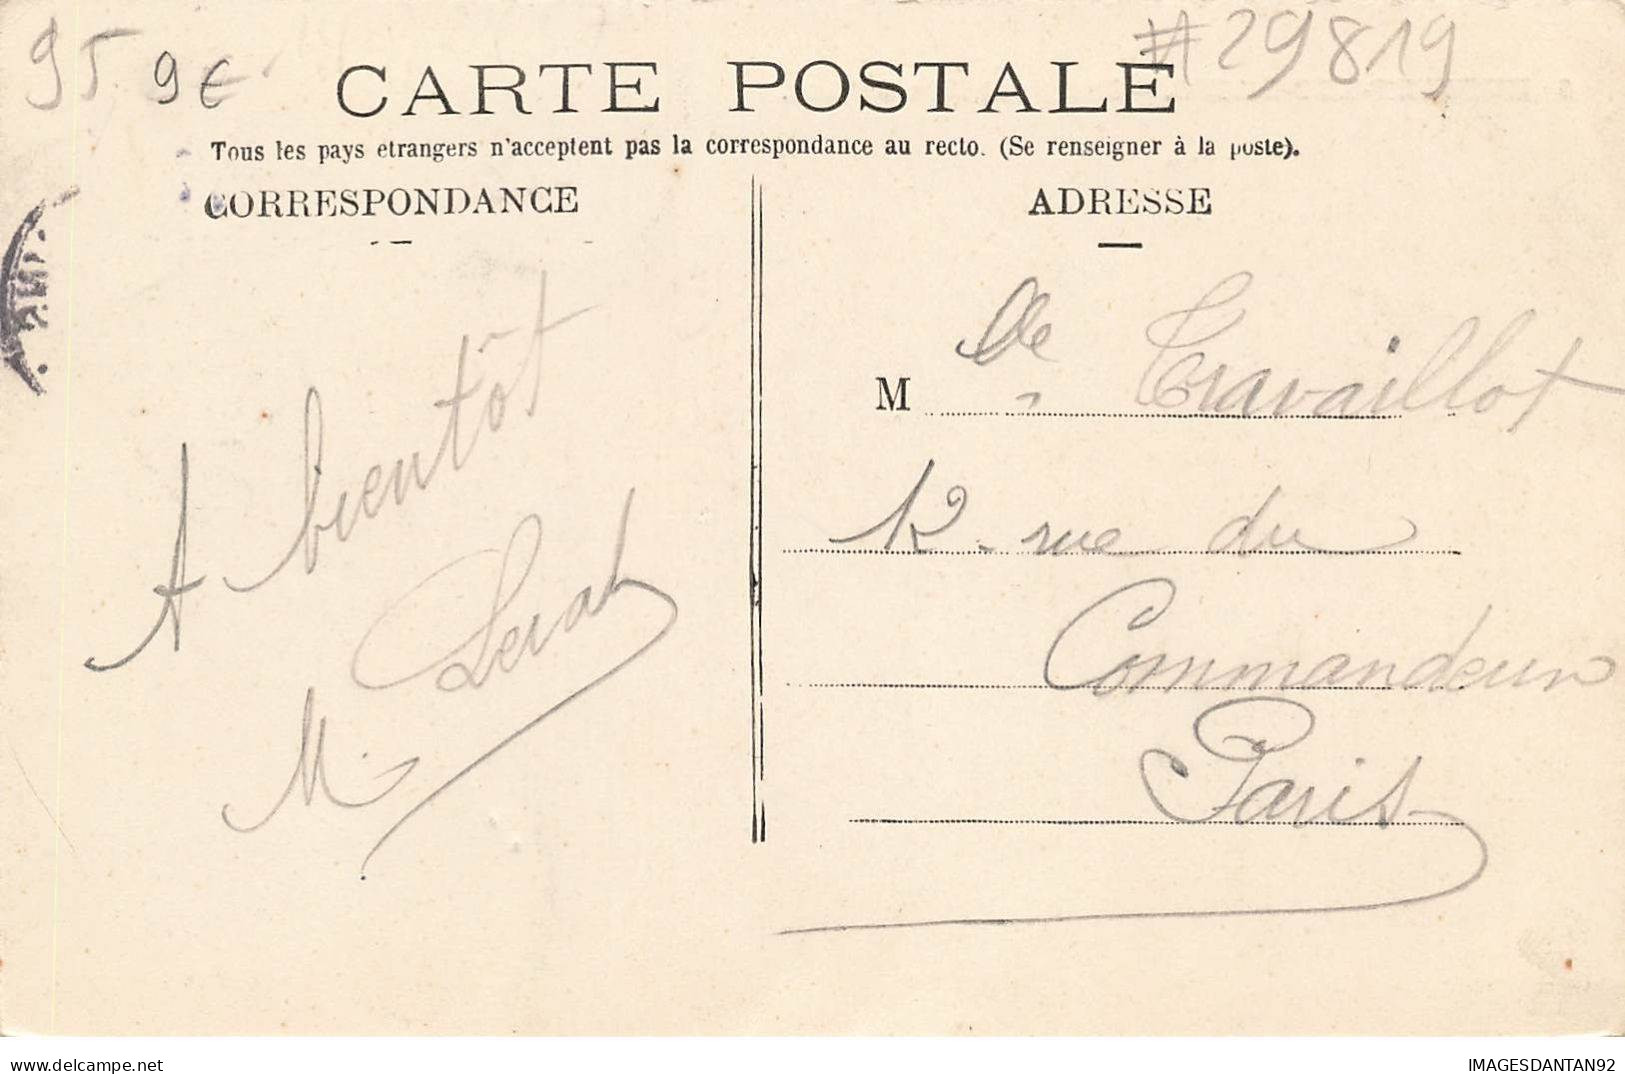 95 9€ #29819
CARTE POSTALE
Tous les pays etrangers n'acceptent pas la correspondance au recto. (Se renseigner à la poste).
CORRESPONDANCE
ADRESSE
A bientôt
M.
M lle Travaillot
12 - rue du
Commandeur
Paris
delcampe.net
IMAGESDANTAN92